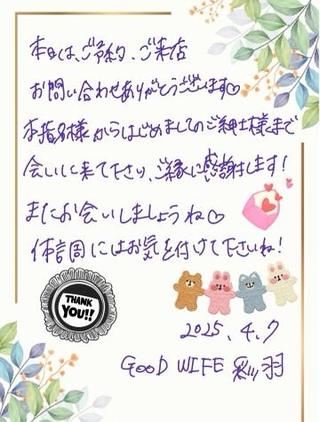 本日は、ご予約、ご来店
お問い合わせありがとうございます♡
本指名様からはじめましてのご紳士様まで
会いに来て下さり、ご縁に感謝します!
またお会いしましょうね♡
体調にはお気を付けて下さいね!
THANK
YOU!!
2025.4.7
GOOD WIFE 彩羽